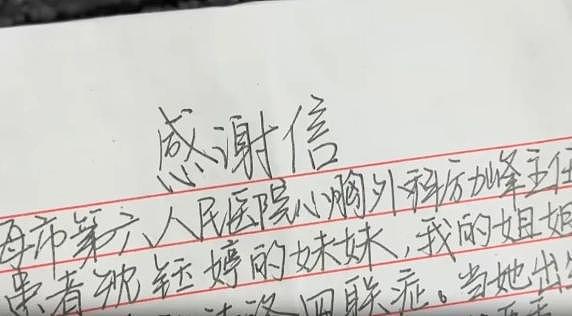 感谢信
海市第六人民医院心胸外科厉加峰主任
患者沈钰婷的妹妹,我的姐姐
法洛四联症。当她出生